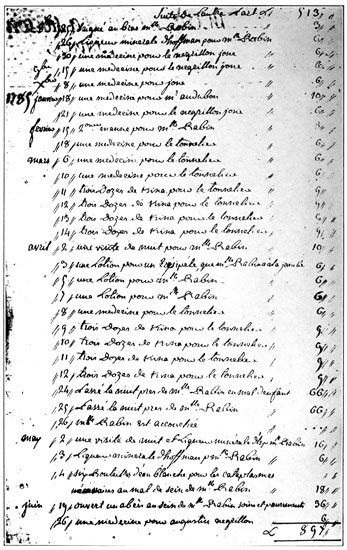 Suite de L'autre part £ 513 „ „
saigné au bras mlle Rabin „ 3 „ „
/26 Liqueur minerale d'hoffman pour mlle Rabin 6 „ „
/30 une medecine pour le negrillon joue „ 6 „ „
/15 une medecine pour le negrillon joue „ 6 „ „
/8 une medecine pour joue „ 6 „ „
1785 janvier /18 une medecine pour mr audubon „ 10 „ „
/21 une medecine pour le negrillon joue „ 6 „ „
fevrier /15 2 onces manne pour mlle Rabin „ 3 „ „
/18 une medecine pour le tonnelier „ 6 „ „
mars /6 une medecine pour le tonnelier „ 6 „ „
/10 une medecine pour le tonnelier „ 6 „ „
/11 trois Dozes de Kina pour le tonnelier „ 9 „ „
/12 trois Dozes de Kina pour le tonnelier „ 9 „ „
/13 trois Dozes de Kina pour le tonnelier „ 9 „ „
/14 trois Dozes de Kina pour le tonnelier „ 9 „ „
avril /2 une visite de nuit pour mlle Rabin „ 10 „ „
/3 une Lotion pour un Erésipele que mlle Rabin a à la jambe 6 „ „
/5 une Lotion pour mlle Rabin „ 6 „ „
/7 une Lotion pour mlle Rabin „ 6 „ „
/8 une medecine pour le tonnelier „ 6 „ „
/9 trois Dozes de Kina pour le tonnelier „ 9 „ „
/10 trois Dozes de Kina pour le tonnelier „ 9 „ „
/11 trois Dozes de Kina pour le tonnelier „ 9 „ „
/12 trois Dozes de Kina pour le tonnelier „ 9 „ „
/24 Passé la nuit pres de mlle Rabin en mal d'enfant 66 „ „
/25 Passé la nuit pres de mlle Rabin „ 66 „ „
/26 mlle Rabin est accouchée
may /2 une visite de nuit et Liqueur minerale d'hof. p mlle Rabin 16 „ „
/3 Liqueur minerale d'hoffman p mlle Rabin „ 6 „ „
/4 six Bouteilles d'eau blanche pour les cataplasmes
au mal de sein de mlle Rabin „ 18 „ „
juin /19 ouvert un abcés au sein de mlle Rabin soins et pansement 36 „ „
/26 une medecine pour augustin negrillon 6 „ „
£ 897 „ „